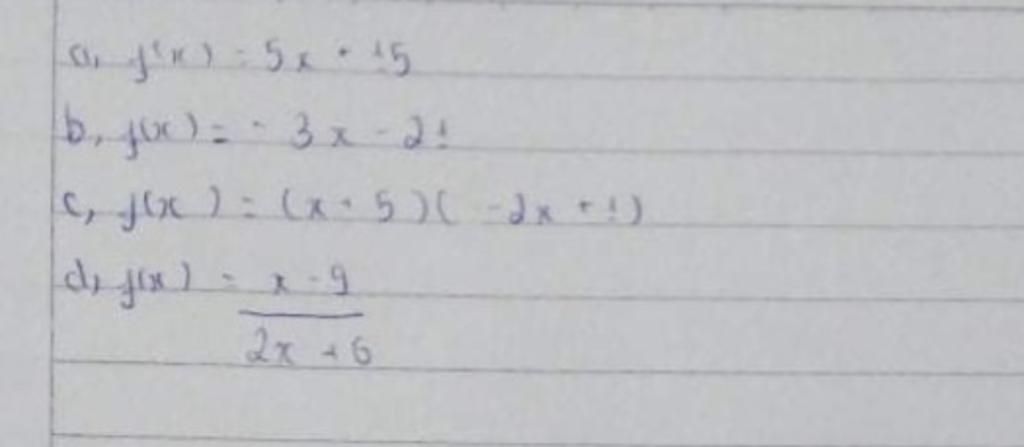 a, f(x) = 5x + 15
b, f(x) = - 3x - 21
c, f(x) = (x + 5)( -2x + 1)
d, f(x) = x - 9
2x + 6